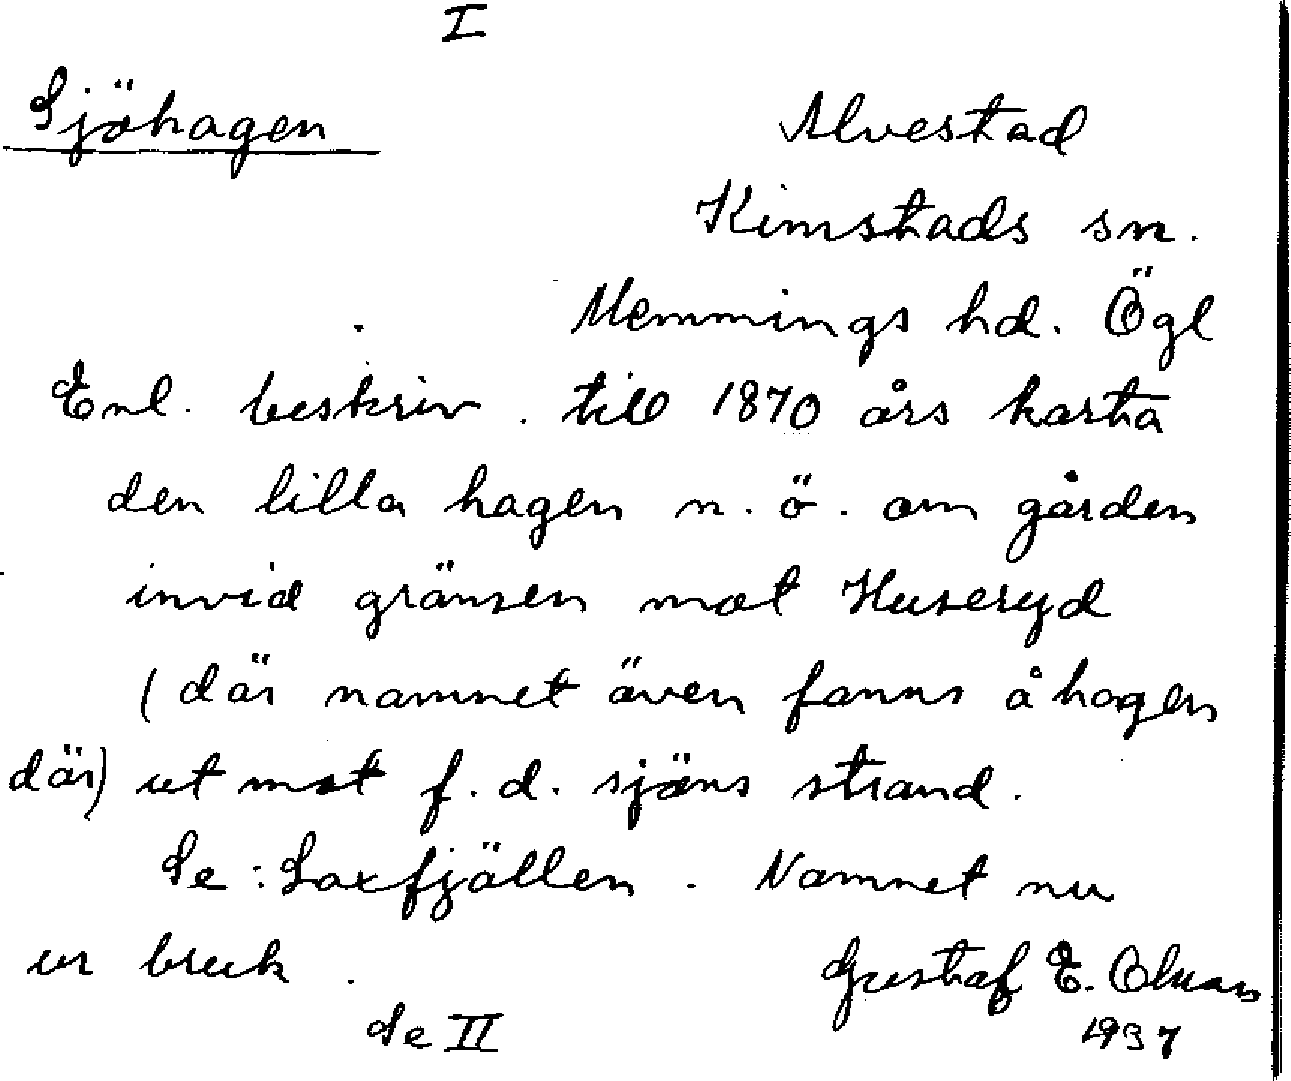 I
Sjöhagen
Alvestad
Kimstads sn.
Memmings hd. Ögl
Enl. beskriv. till 1870 års karta
den lilla hagen n. ö. om gården
invid gränsen mot Huseryd
(där namnet även fanns å hagen
där) ut mot f. d. sjöns strand.
Se: Saxfjällen. Namnet nu
ur bruk.
Gustaf E. Olsson
Se II
1937